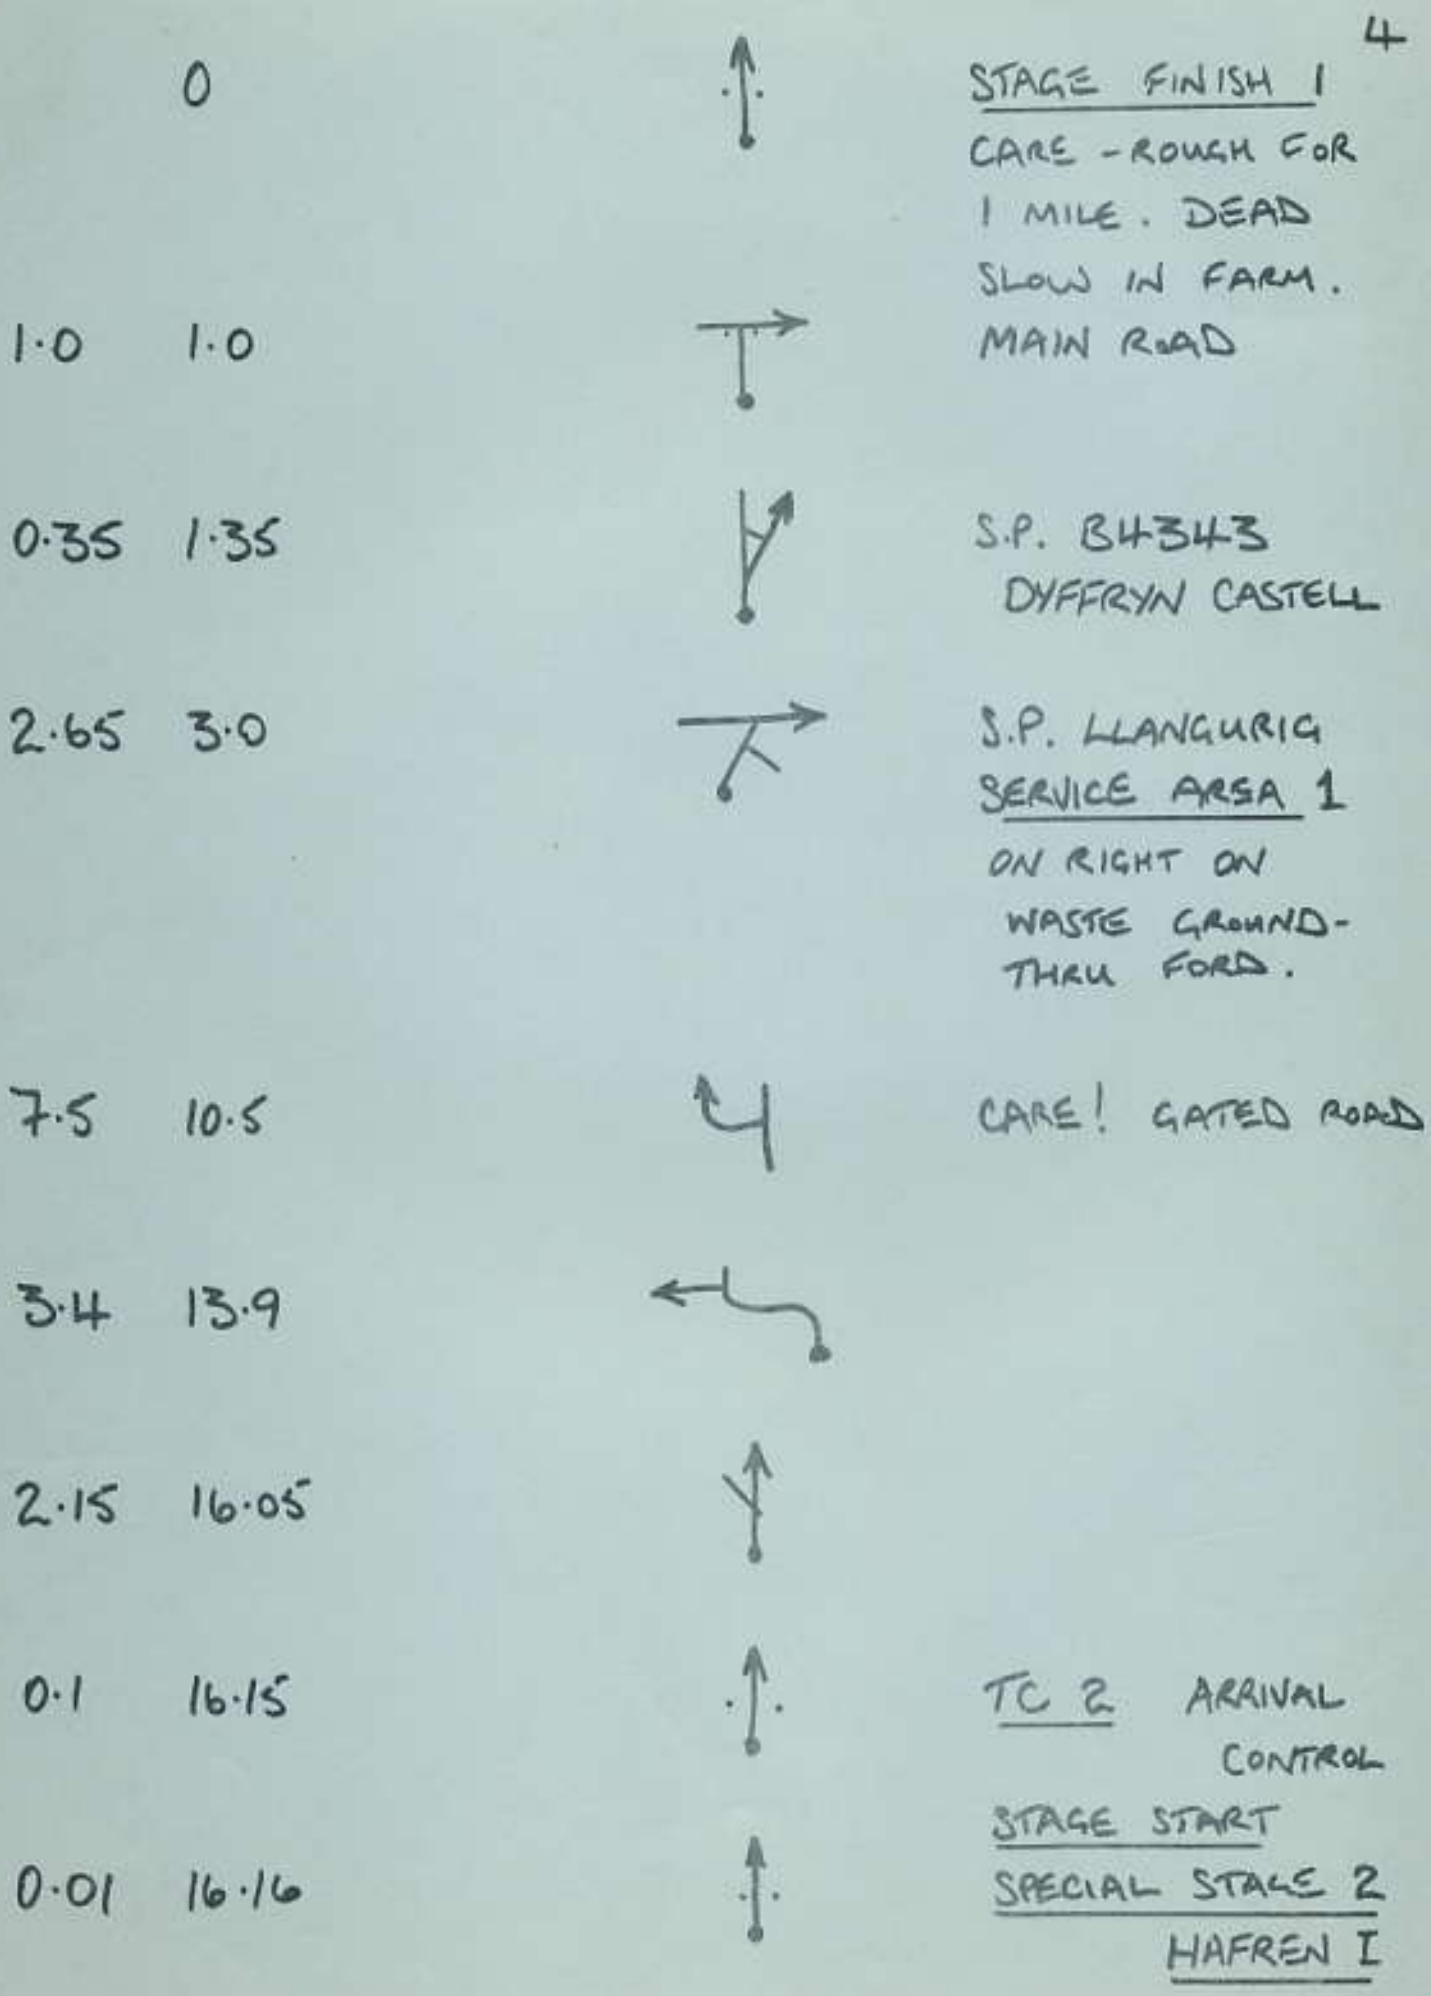 4
0 STAGE FINISH 1
CARE - ROUGH FOR
1 MILE. DEAD
SLOW IN FARM.
1.0 1.0 MAIN ROAD
0.35 1.35 S.P. B4343
DYFFRYN CASTELL
2.65 3.0 S.P. LLANGURIG
SERVICE AREA 1
ON RIGHT ON
WASTE GROUND-
THRU FORD.
7.5 10.5 CARE! GATED ROAD
3.4 13.9
2.15 16.05
0.1 16.15 TC 2 ARRIVAL
CONTROL
STAGE START
0.01 16.16 SPECIAL STAGE 2
HAFREN I